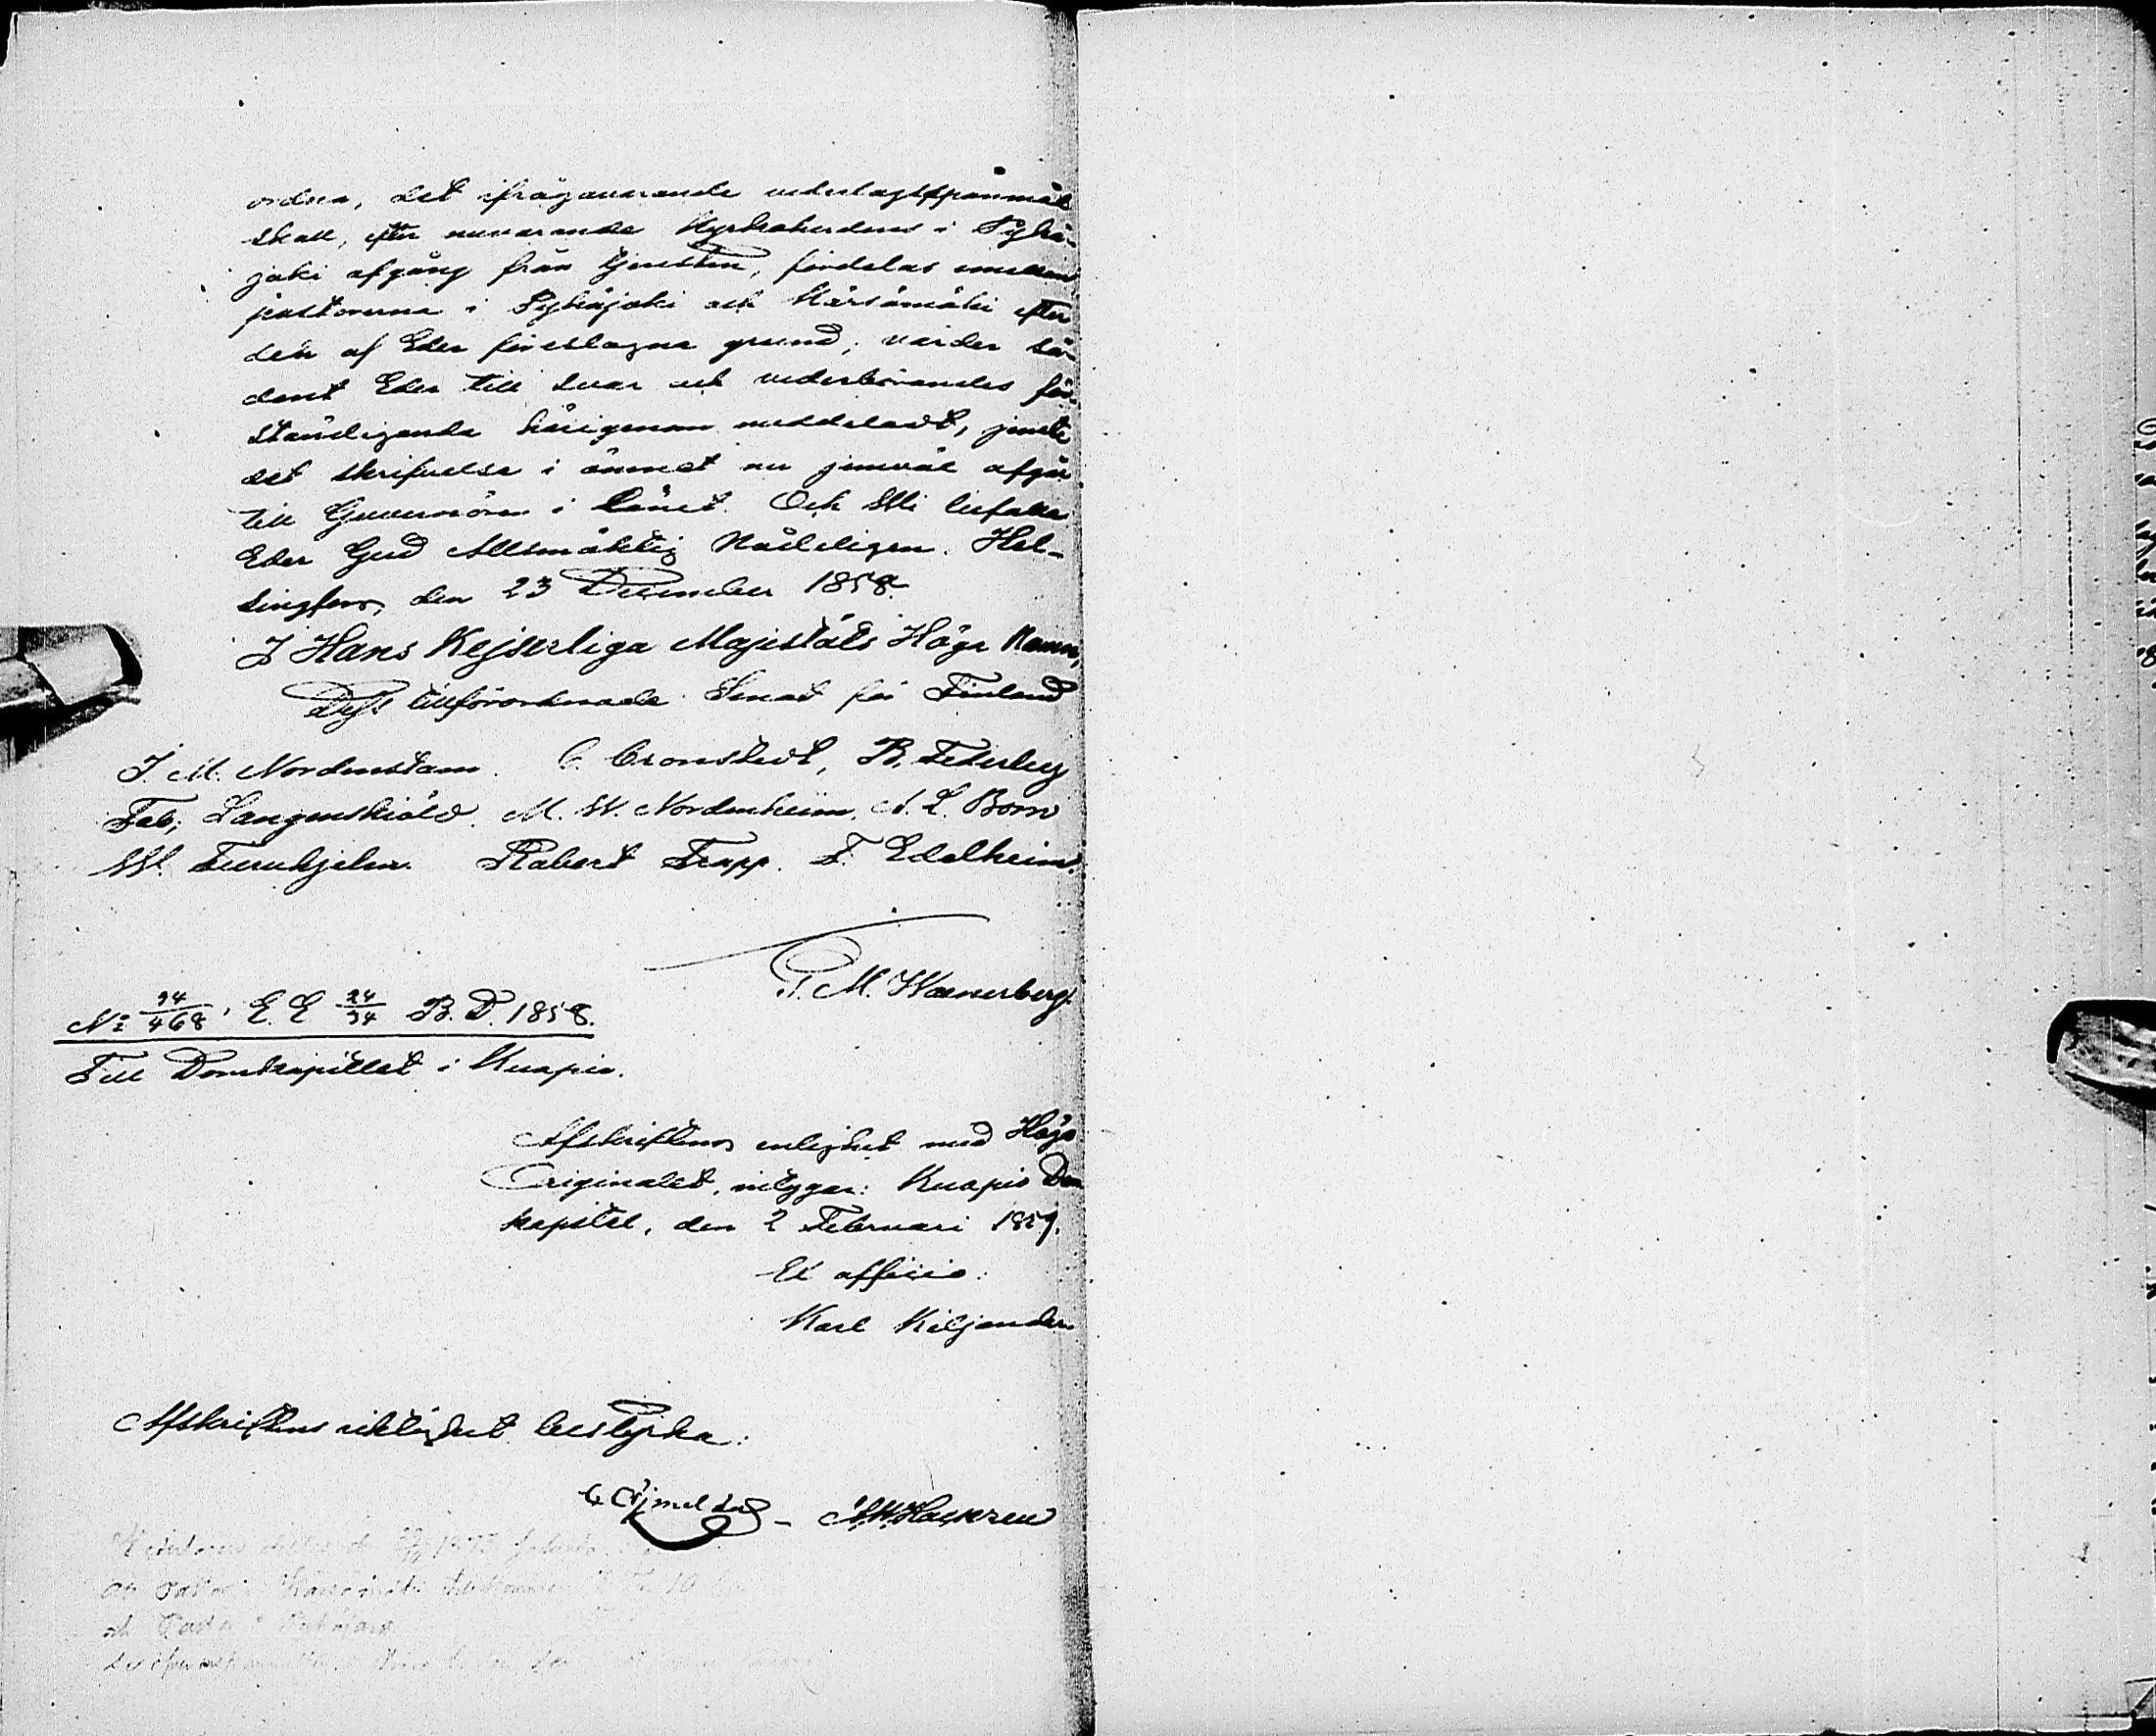 ordna, det ifrågavarande vederlagsspanmål
skall, efter nuvarande Kyrkoherdens i Pyhä-
joki afgång från tjensten, fördelas emellan
pastorerna i Pyhäjoki och Kärsämäki efter
den af Eder föreslagna grund; varder så-
dant Eder till svar och vederbörandes för-
ständigande härigenom meddeladt, jemte
det skrifvelse i ämnet nu jemväl afgår
till Guvernören i länet. Och Wi befalla
Eder Gud Allsmäktig Nådeligen. Hel-
singfors, den 23 December 1858.
I Hans Kejserliga Majestäts Höga Namn,
Dess tillförordnade Senat för Finland
J. M. Nordenstam. C. Cronstedt, B. Federley
Fab. Langenskiöld. M. W. Nordenheim. A. L. Born
W. Furuhjelm. Robert Trapp. F. Edelheim.
P. M. Wænerberg.
No 94/468, E. E 24/34 B. D. 1858.
Till Domkapitlet i Kuopio.
Afskriftens enlighet med Höga
Originalet, intygar: Kuopio Dom
kapitel, den 2 Februari 1859.
Ex officio:
Karl Kiljander
Afskriftens riktighet bestyrka: